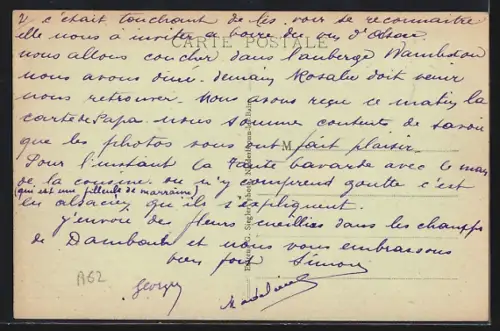 V c'était touchant de les voir se reconnaître
elle nous a invités a boire du vin d'
CARTE POSTALE
nous allons coucher dans l'auberge
nous avons dîné. demain Rosalie doit venir
nous retrouver. Nous avons reçu ce matin la
carte de Papa. nous sommes contents de savoir
que les photos vous ont fait plaisir.
M
Pour l'instant la Tante bavarde avec le mari
de la cousine. on n'y comprend goutte c'est
(qui est une filleule de marraine)
les alsacien qu'ils s'expliquent.
j'envoie des fleurs cueillies dans les champs
de Dambach et nous vous embrassons
bien fort Simone
A62
Georges
Madeleine